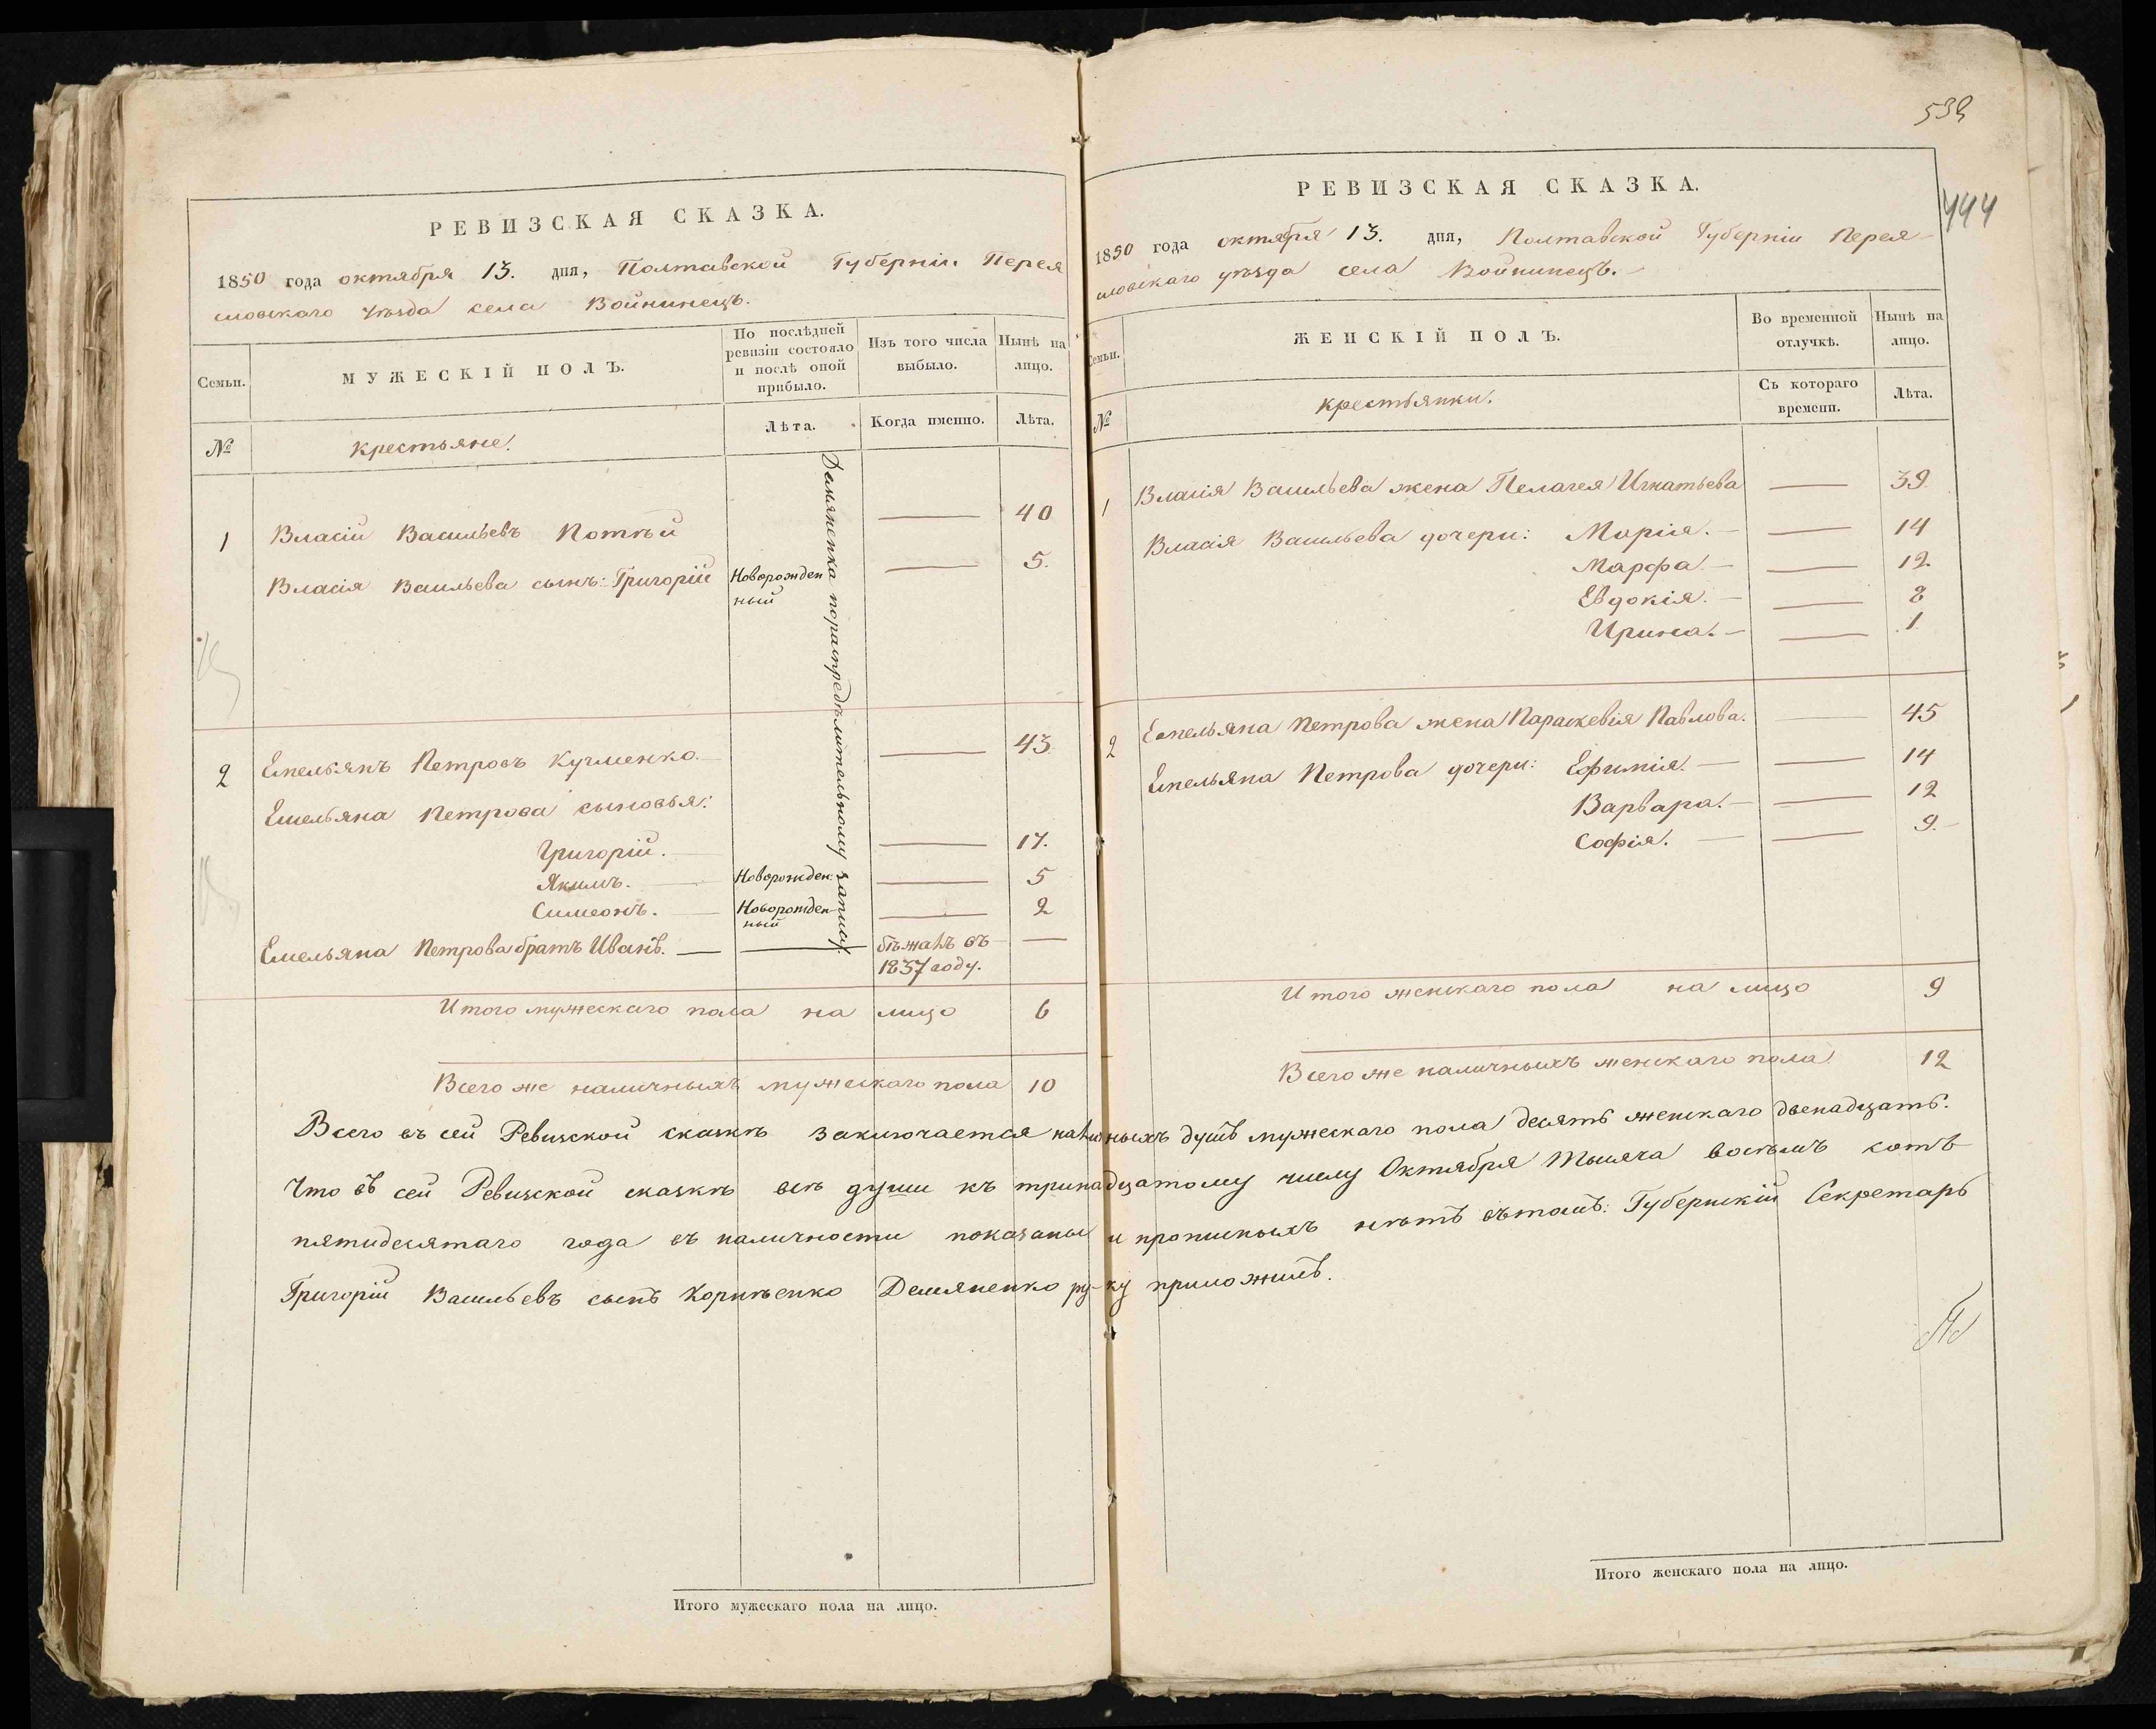 РЕВИЗСКАЯ СКАЗКА.
1850 года октября 13. дня, Полтавской Губерніи Перея
словскаго уѣзда села Войнинецъ.
Семьи.
МУЖЕСКІЙ ПОЛЪ.
По послѣдней
ревизіи состояло
и послѣ оной
прибыло.
Изъ того числа
выбыло.
Нынѣ на
лицо.
№
крестьяне.
Лѣта.
Когда именно.
Лѣта.
1 Власій Васильевъ Потѣй — 40
Власія Васильева сынъ: Григорій Новорожден — 5.
ный
2 Емельянъ Петровъ Кучменко. — 43
Емельяна Петрова сыновья:
Григорій. — 17.
Якимъ. — Новорожден: — 5
Симеонъ. — Новорожден- — 2
ный
Емельяна Петрова братъ Иванъ. — — бѣжалъ въ —
1837 году.
Демяненка
записи
Итого мужескаго пола на лицо 6
Всего же наличныхъ мужескаго пола 10
Итого мужескаго пола на лицо.
539
444
РЕВИЗСКАЯ СКАЗКА.
1850 года октября 13. дня, Полтавской Губерніи Перея-
словскаго уѣзда села Войнинецъ.
Семьи.
ЖЕНСКІЙ ПОЛЪ.
Во временной
отлучкѣ.
Нынѣ на
лицо.
№
крестьянки.
Съ котораго
времени.
Лѣта.
1 Власія Васильева жена Пелагея Игнатьева — 39
Власія Васильева дочери: Марія. — — 14
Марфа. — — 12.
Евдокія. — — 8
Ирина. — — 1
2 Емельяна Петрова жена Параскевія Павлова. — 45
Емельяна Петрова дочери: Ефимія. — — 14
Варвара. — — 12
Софія. — — 9.
Итого женскаго пола на лицо 9
Всего же наличныхъ женскаго пола 12
Всего въ сей Ревизской сказкѣ заключается наличныхъ душъ мужескаго пола десять женскаго двенадцать.
Что въ сей Ревизской сказкѣ всѣ души къ тринадцатому числу Октября Тысяча восемъ сотъ
пятидесятаго года въ наличности показаны и прописныхъ нѣтъ въ томъ: Губернскій Секретарь
Григорій Васильевъ сынъ Корнѣенко Демяненко ру-ку приложилъ.
Итого женскаго пола на лицо.